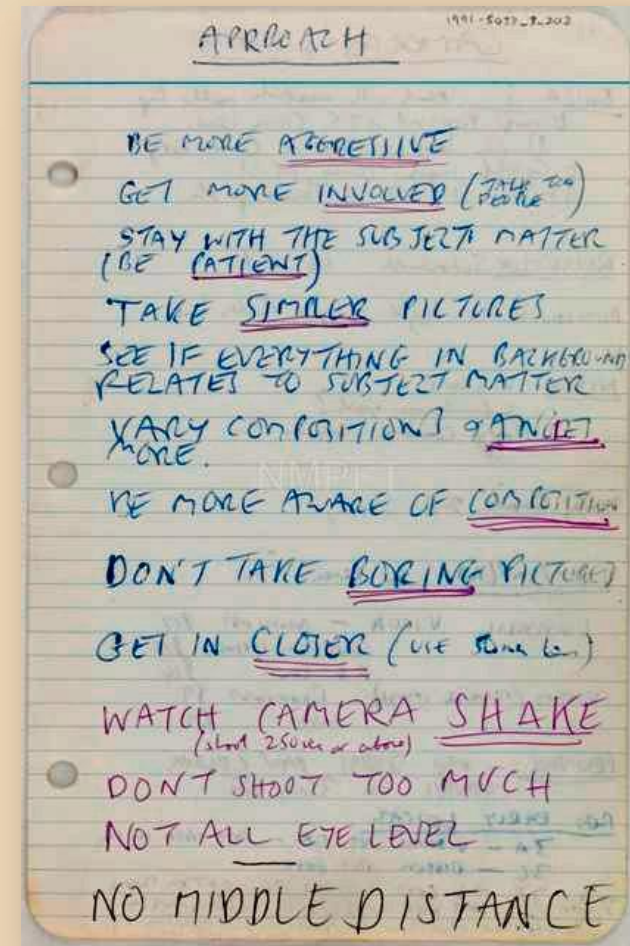 1991-5037_9_202
APPROACH
BE MORE AGGRESSIVE
GET MORE INVOLVED (TALK TOO PEOPLE)
STAY WITH THE SUBJECT MATTER
(BE PATIENT)
TAKE SIMPLER PICTURES
SEE IF EVERYTHING IN BACKGROUND
RELATES TO SUBJECT MATTER
VARY COMPOSITIONS & ANGLES
MORE.
NMPFT
BE MORE AWARE OF COMPOSITION
DON'T TAKE BORING PICTURES
GET IN CLOSER (USE 50mm lens)
WATCH CAMERA SHAKE
(shoot 250sec or above)
DON'T SHOOT TOO MUCH
NOT ALL EYE LEVEL
NO MIDDLE DISTANCE